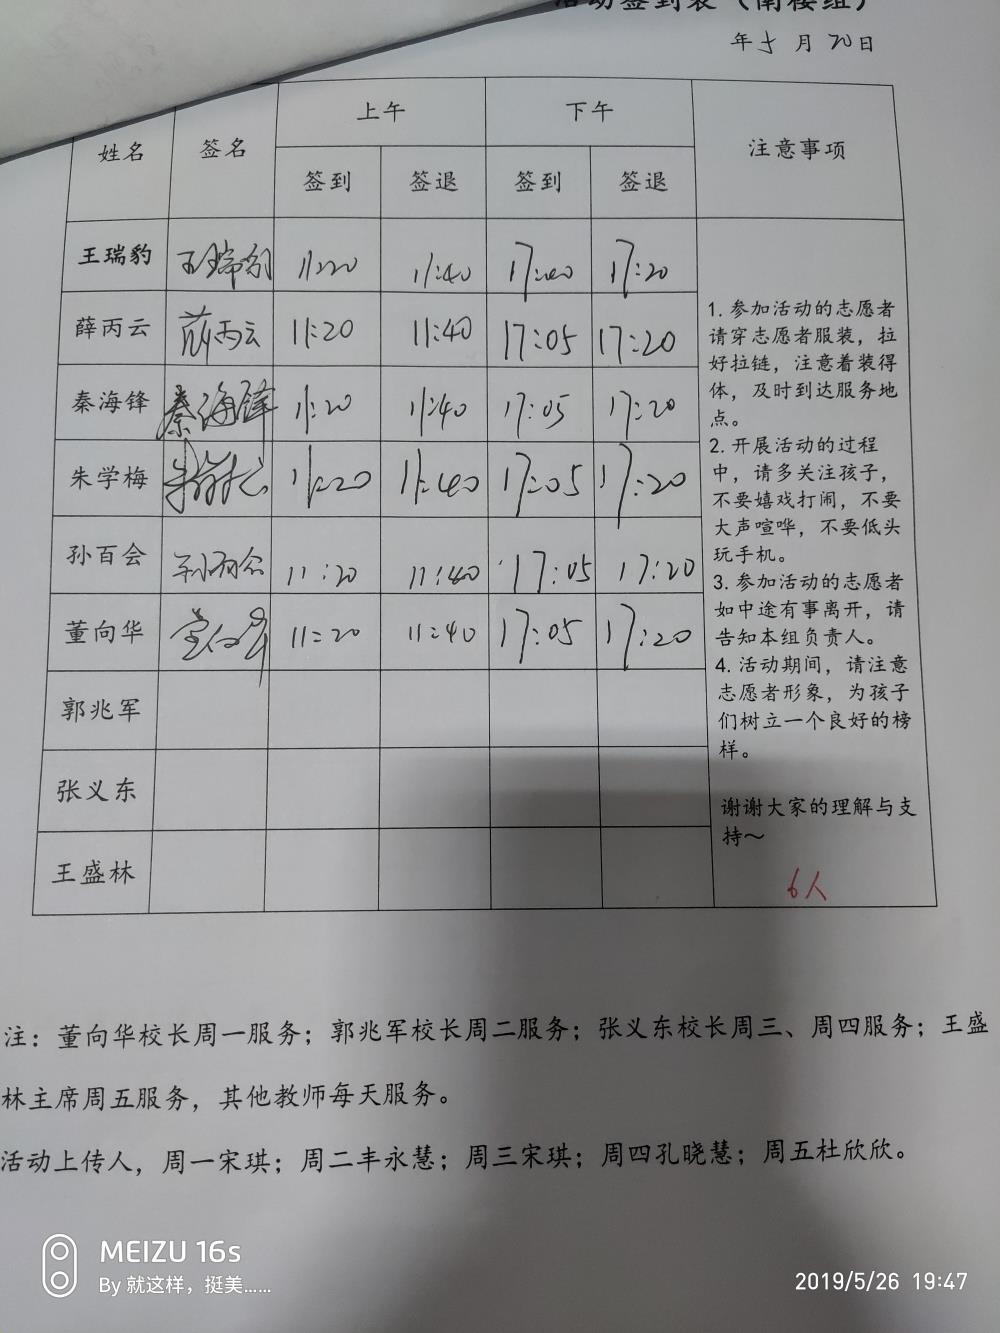 活动签到表（南楼组）
年 5 月 20 日
姓名 签名 上午 下午 注意事项
签到 签退 签到 签退
王瑞豹 王瑞豹 11:20 11:40 17:00 17:20
薛丙云 薛丙云 11:20 11:40 17:05 17:20
秦海锋 秦海锋 11:20 11:40 17:05 17:20
朱学梅 朱学梅 11:20 11:40 17:05 17:20
孙百会 孙百会 11:20 11:40 17:05 17:20
董向华 董向华 11:20 11:40 17:05 17:20
郭兆军
张义东
王盛林
1. 参加活动的志愿者
请穿志愿者服装，拉
好拉链，注意着装得
体，及时到达服务地
点。
2. 开展活动的过程
中，请多关注孩子，
不要嬉戏打闹，不要
大声喧哗，不要低头
玩手机。
3. 参加活动的志愿者
如中途有事离开，请
告知本组负责人。
4. 活动期间，请注意
志愿者形象，为孩子
们树立一个良好的榜
样。
谢谢大家的理解与支
持～
6人
注：董向华校长周一服务；郭兆军校长周二服务；张义东校长周三、周四服务；王盛
林主席周五服务，其他教师每天服务。
活动上传人，周一宋琪；周二丰永慧；周三宋琪；周四孔晓慧；周五杜欣欣。
MEIZU 16s
By 就这样，挺美......
2019/5/26 19:47